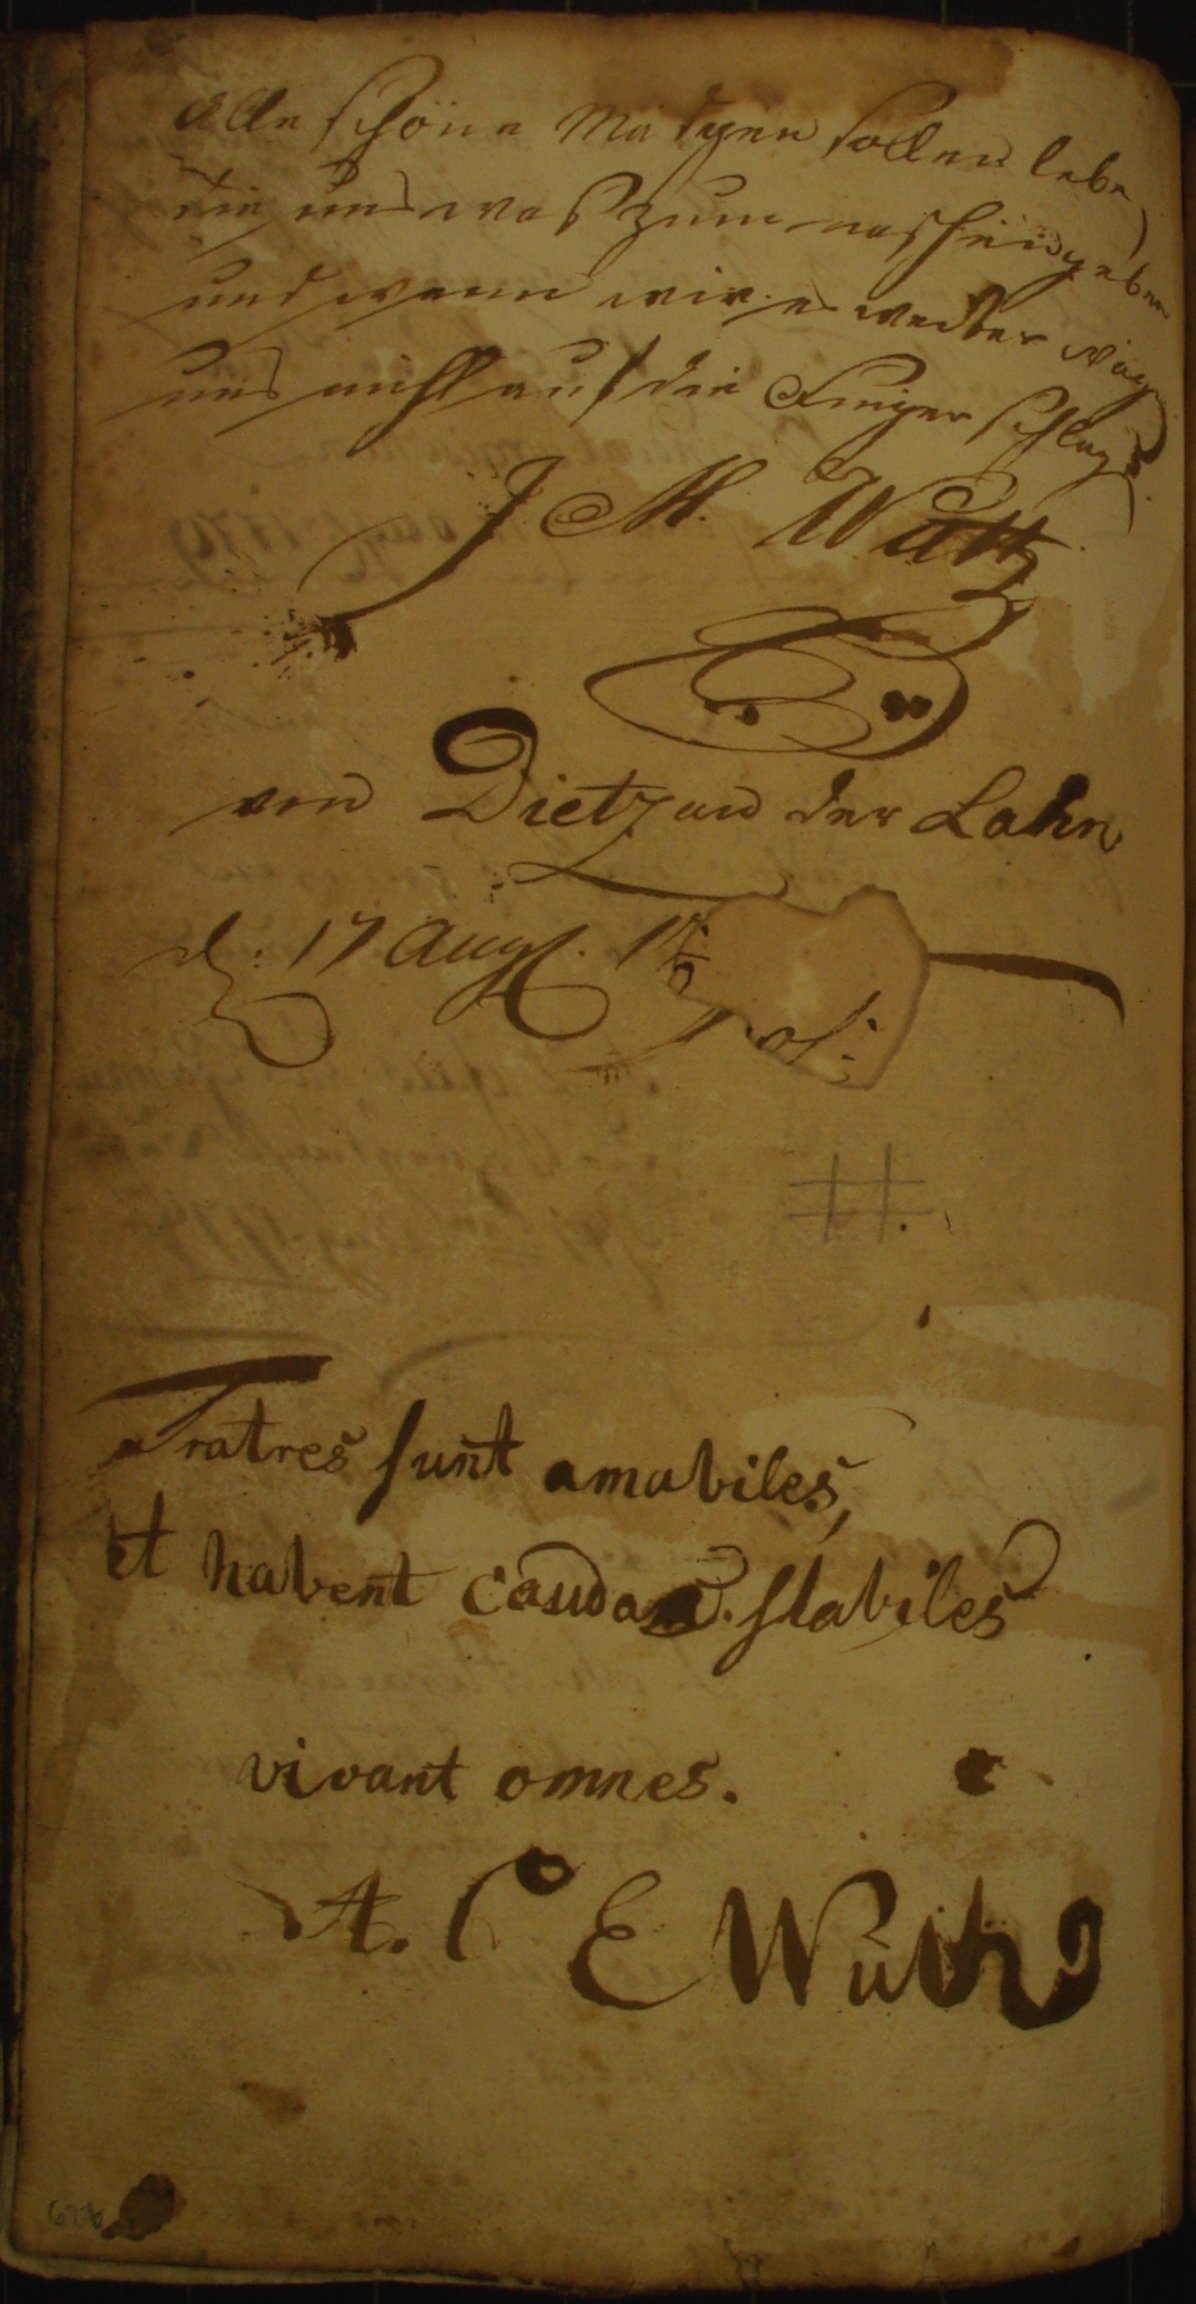 Alle schöne Mädgen sollen leben
die uns was zum naschen geben
und wann wir es weiter wagen
uns nicht auf die Finger schlagen.
J M. Wütz
von Dietz an der Lahn
d: 17 Augst.
Fratres sunt amabiles,
Et habent caudas stabiles
vivant omnes.
A. C E Wuth
62b